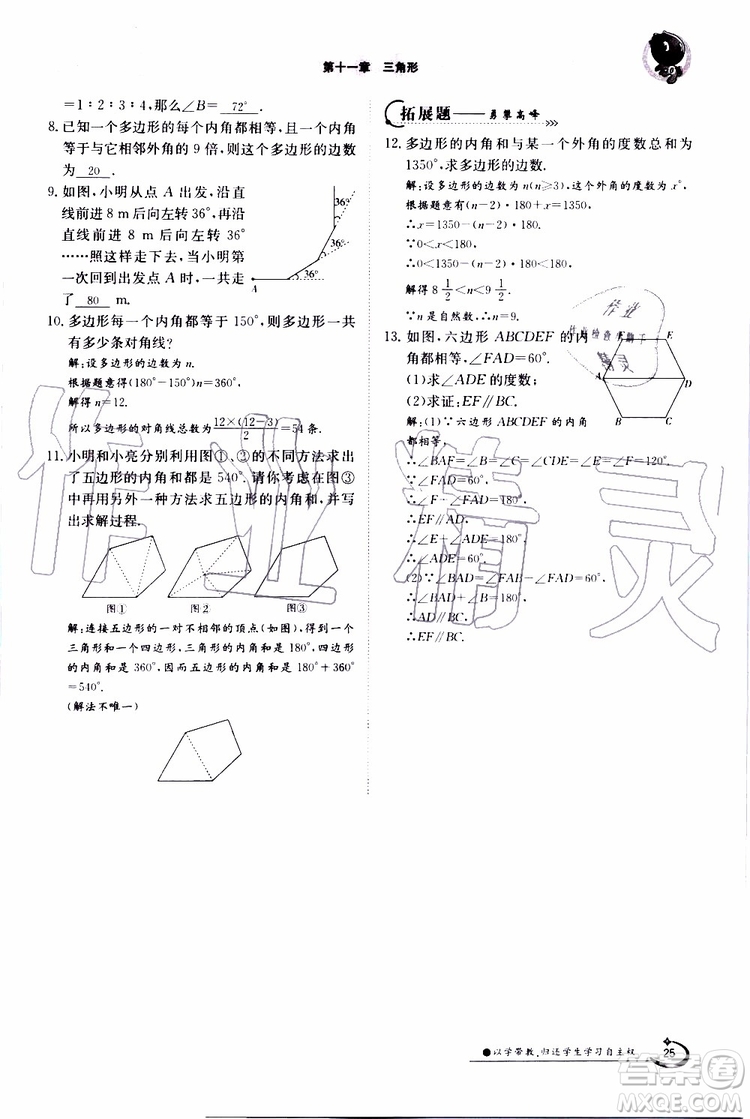 第十一章 三角形
=1∶2∶3∶4,那么∠B= 72° .
8. 已知一个多边形的每个内角都相等,且一个内角
等于与它相邻外角的 9 倍,那么这个多边形的边数
为 20 .
9. 如图,小明从点 A 出发,沿直
线前进 8 m后向左转 36°,再沿
直线前进 8 m后向左转 36°
……照这样走下去,当小明第
一次回到出发点 A 时,一共走
了 80 m.
36°
36°
A
10. 多边形每一个内角都等于 150°,则多边形一共
有多少条对角线?
解:设多边形的边数为 n.
根据题意得(180°-150°)n=360°
解得 n=12.
所以多边形的对角线总数为12×(12-3)/2=54 条.
11. 小明和小亮分别利用图①、②的不同方法求出
了五边形的内角和都是 540°. 请你考虑在图③
中再用另外一种方法求五边形的内角和,并写
出求解过程.
图① 图② 图③
解:连接五边形的一对不相邻的顶点(如图),得到一个
三角形和一个四边形,三角形的内角和是 180°,四边形
的内角和是 360°,因而五边形的内角和是 180°+360°
=540°.
(解法不唯一)
拓展题——勇攀高峰
12. 多边形的内角和与某一个外角的度数总和为
1350°,求多边形的边数.
解:设多边形的边数为 n(n≥3),这个外角的度数为 x°,
根据题意有(n-2)·180+x=1350,
∴x=1350-(n-2)·180.
∵0<x<180,
∴0<1350-(n-2)·180<180.
解得 8 1/2<n<9 1/2.
∵n是自然数,∴n=9.
13. 如图,六边形 ABCDEF 的内
角都相等,∠FAD=60°.
(1)求∠ADE 的度数;
(2)求证:EF∥BC.
F E
A D
B C
解:(1)∵六边形 ABCDEF 的内角
都相等,
∴∠BAF=∠CDE=∠E=∠F=120°.
∵∠FAD=60°,
∴∠F+∠FAD=180°,
∴EF∥AD,
∴∠E+∠ADE=180°,
∴∠ADE=60°.
(2)∵∠BAD=∠BAF-∠FAD=60°,
∴∠BAD+∠B=180°,
∴AD∥BC,
∴EF∥BC.
作业
精灵
作业
精灵
●以学带教,归还学生学习自主权
25
答案圈
MXQE.COM